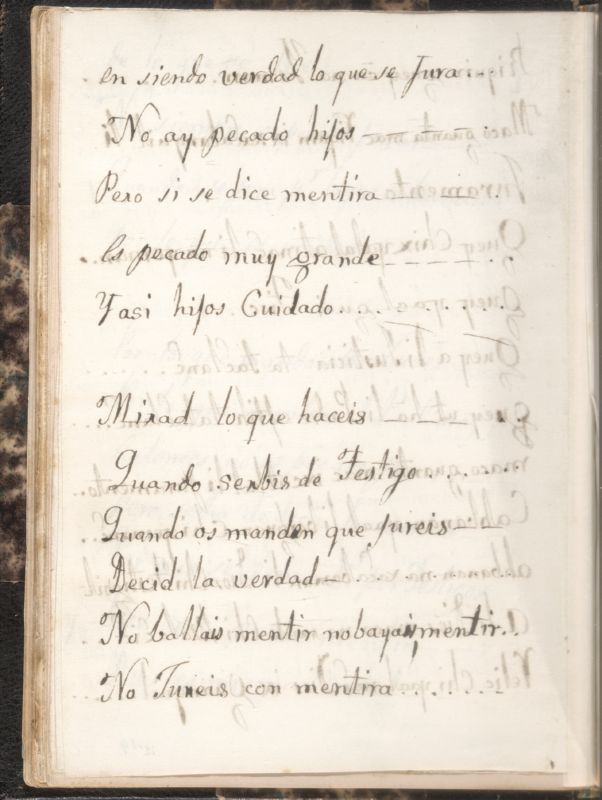 en siendo verdad lo que se Jura..
No ay pecado hijos — — — .
Pero si se dice mentira — — .
Es pecado muy grande _ _ _ _ . .
Y asi hijos Cuidado . . . . . . . .
Mirad lo que haceis — — — . .
Quando serbis de Testigo . . . .
Quando os manden que Jureis — —
Decid la verdad — . . . . .
No ballais mentir no bayais, mentir..
No Jureis con mentira . . . . . .